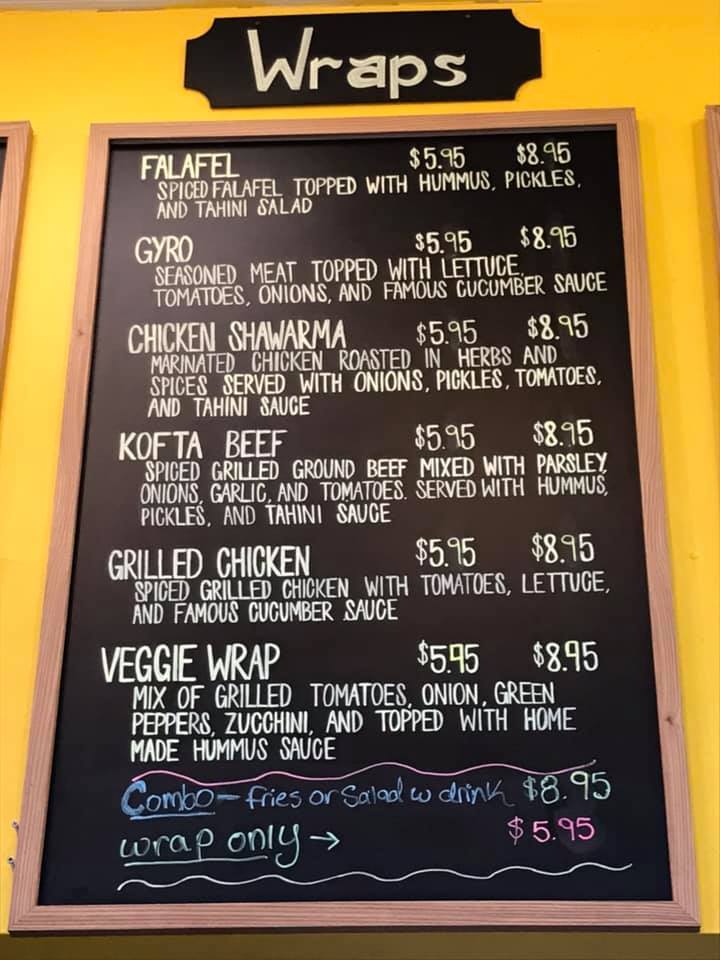 Wraps
FALAFEL $5.95 $8.95
SPICED FALAFEL TOPPED WITH HUMMUS, PICKLES,
AND TAHINI SALAD
GYRO $5.95 $8.95
SEASONED MEAT TOPPED WITH LETTUCE,
TOMATOES, ONIONS, AND FAMOUS CUCUMBER SAUCE
CHICKEN SHAWARMA $5.95 $8.95
MARINATED CHICKEN ROASTED IN HERBS AND
SPICES SERVED WITH ONIONS, PICKLES, TOMATOES,
AND TAHINI SAUCE
KOFTA BEEF $5.95 $8.95
SPICED GRILLED GROUND BEEF MIXED WITH PARSLEY,
ONIONS, GARLIC, AND TOMATOES. SERVED WITH HUMMUS,
PICKLES, AND TAHINI SAUCE
GRILLED CHICKEN $5.95 $8.95
SPICED GRILLED CHICKEN WITH TOMATOES, LETTUCE,
AND FAMOUS CUCUMBER SAUCE
VEGGIE WRAP $5.95 $8.95
MIX OF GRILLED TOMATOES, ONION, GREEN
PEPPERS, ZUCCHINI, AND TOPPED WITH HOME
MADE HUMMUS SAUCE
Combo - fries or Salad w drink $8.95
wrap only → $5.95